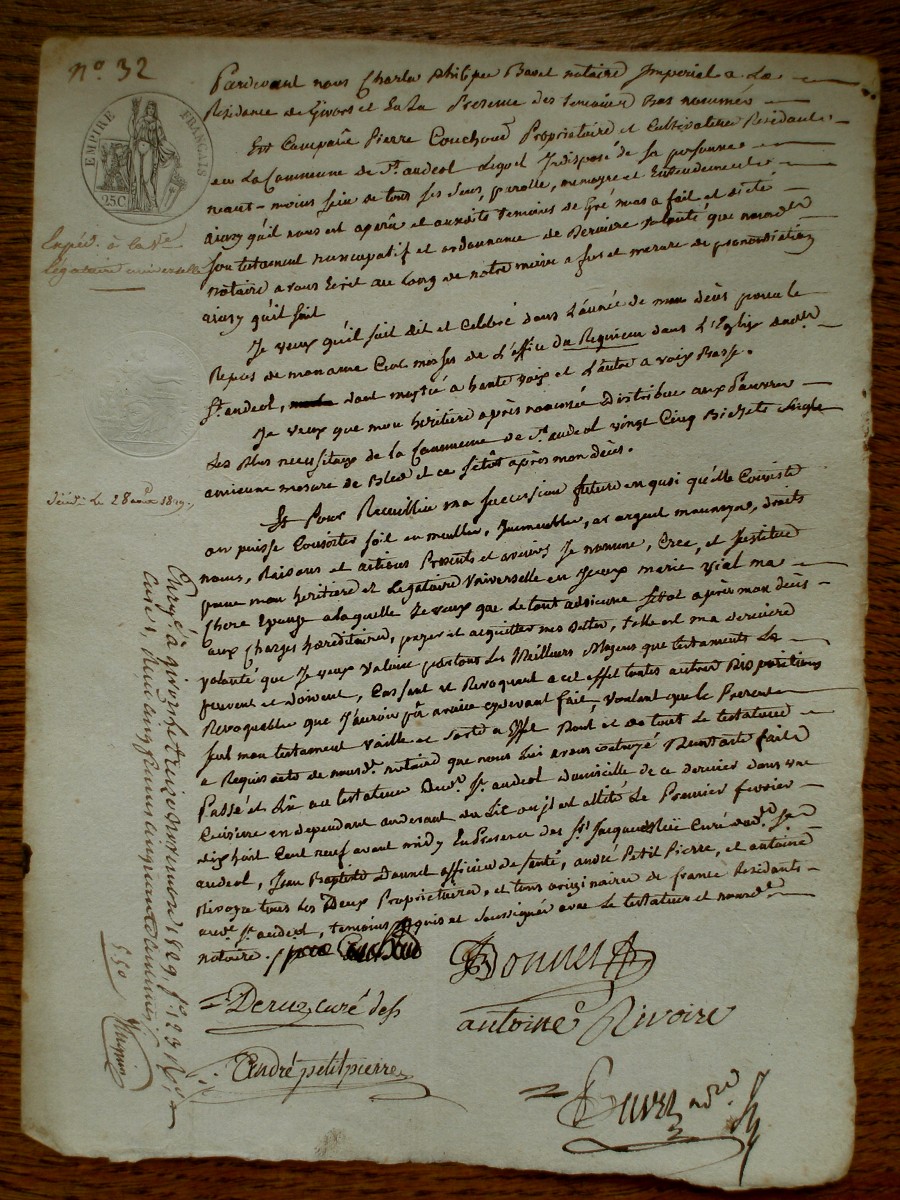 N° 32
EMPIRE FRANÇAIS
25C
Pardevant nous Charles Philippe notaire Imperial a La
Résidance de Givors et En La Presence des temoins Bas nommés
Est Comparu Pierre Couchoud Propriétaire et Cultivateur Residant
en La Commune de St. andeol Lequel Indisposé de Sa personne
neant-moins Sain de tous Ses Sens, parolle, memoyre et Entendement
ainsy qu'il nous est aparu et auxdits temoins de Gré nous a fait et dicté
Son testament nuncupatif et ordonnance de Derniere volonté que nous dt
notaire avons Ecrit au Long de notre main a fur et mesure de prononciation
ainsy qu'il Suit
Je veux qu'il soit dit et Celebré dans L'année de mon décès pour le
Repos de mon ame Cent messes de L'office du Requiem dans L'Eglise dudt
St. andeol, dont moytié a haute voix et L'autre a voix Basse.
Je veux que mon heritiere après nommée Distribue aux Pauvres
Les Plus necessiteux de la Commune de St. andeol vingt Cinq Bichets Seigle
ancienne mesure de et ce Sitôt après mon décès.
Et Pour Recueillir ma Succession future en quoi qu'elle Consiste
ou puisse Consister soit en meubles, Immeubles, or argent monnoye, droits
noms, Raisons et actions Presents et avenirs Je nomme, Crée, et Institue
pour mon heritiere et Légataire Universelle en marie Vial ma
Chere Epouse a laquelle Je veux que Le tout advienne Sitot après mon decès
aux Charges hereditaires, payer et acquitter mes dettes, telle est ma derniere
volonté que Je veux valoir partous Les Meilleurs Moyens que testaments Le
peuvent et doivent, Cassant et Revoquant a cet effet toutes autres Dispositions
Revoquables que J'aurois pû avoir cydevant fait, voulant que le Present
Seul mon testament vaille et Sorte a Effet Dont et du tout Le testateur
a Requis acte de nousdt. notaire que nous Lui avons octroyé Nunstante fait
Passé et Lû au testateur St. andeol domicille de ce dernier dans une
Cuisine en dependant audevant du Lit ou il est alité Le Premier fevrier
dix huit Cent neuf avant midy En Presence de Sr. Jacques Curé dudt. St
andeol, Jean Baptiste Donnet officier de Santé, andré Petit Pierre, et antoine
Rivoire tous Les Deux Proprietaires, et tous originaire de france Residants
audt. St. andeol, temoins Requis et Soussignés avec Le testateur et nousdt
notaire. Couchoud
antoine Rivoire
curé de
André petit pierre
Expéd. à la Ve
Légataire universelle
le 28 1809
Enreg. à givors le treize 1809 f° 123
Case 1, deux